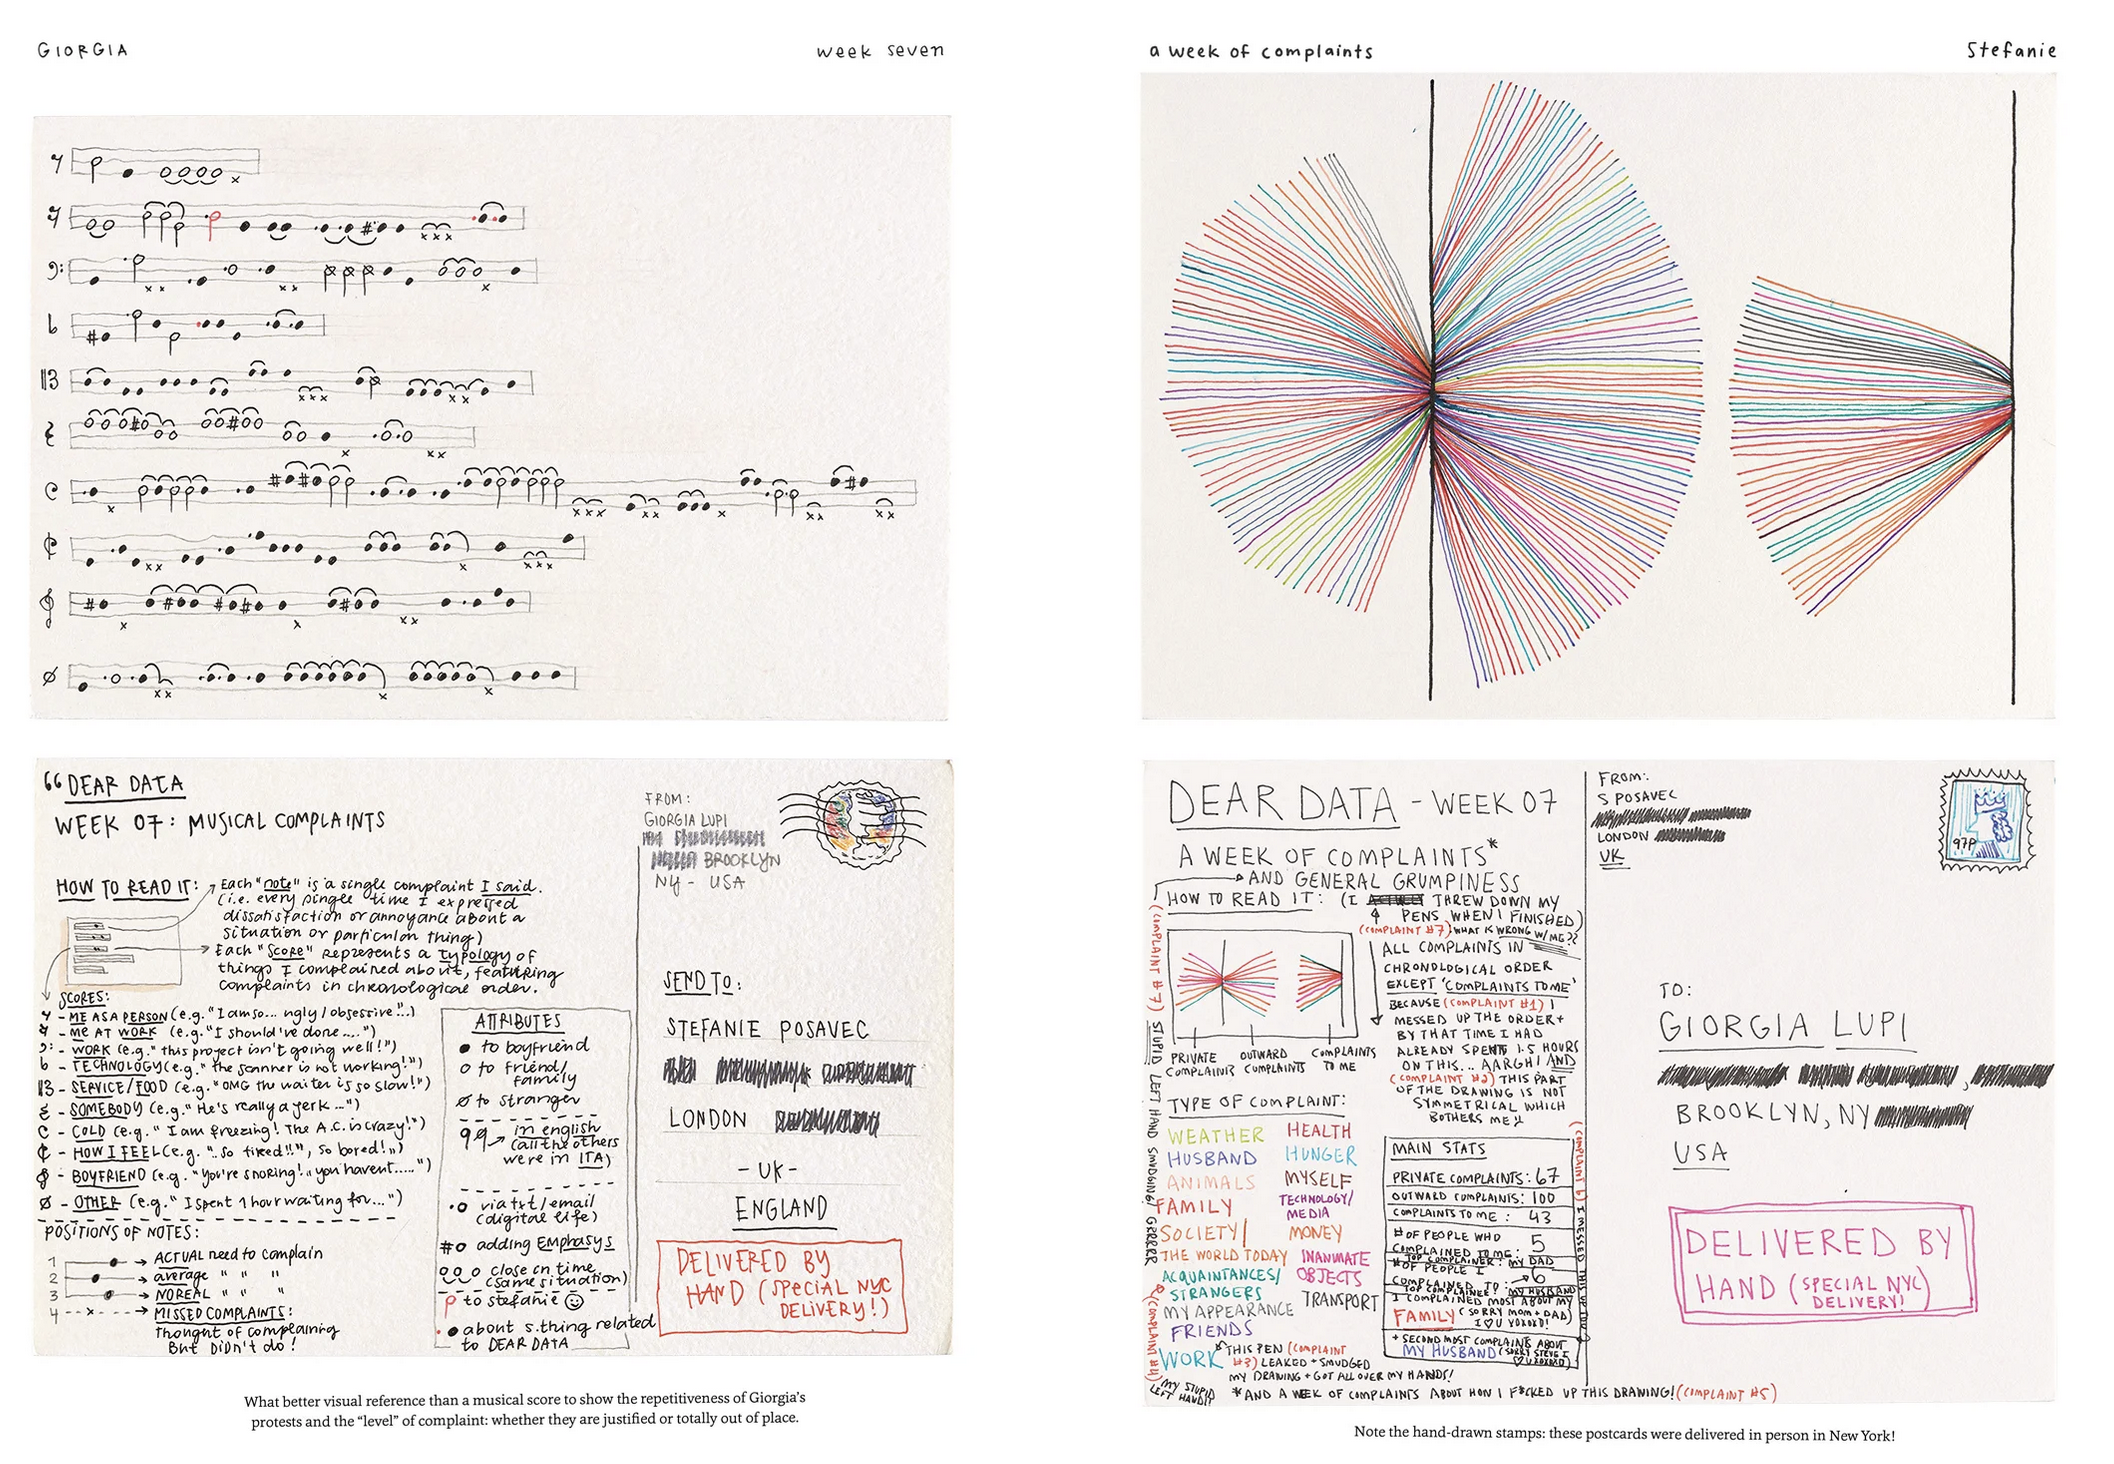 GIORGIA
week seven
a week of complaints
Stefanie
“DEAR DATA
WEEK 07: MUSICAL COMPLAINTS
HOW TO READ IT:
Each "note" is a single complaint I said.
(i.e. every single time I expressed
dissatisfaction or annoyance about a
situation or particular thing)
Each "Score" represents a typology of
things I complained about, featuring
complaints in chronological order.
SCORES:
- ME AS A PERSON (e.g. "I am so... ugly / obsessive!..)
- ME AT WORK (e.g. "I should've done....")
- WORK (e.g. "this project isn't going well!")
- TECHNOLOGY (e.g. "the scanner is not working!")
- SERVICE/FOOD (e.g. "OMG the waiter is so slow!")
- SOMEBODY (e.g. "He's really a jerk...")
- COLD (e.g. "I am freezing! The A.C. is crazy!")
- HOW I FEEL (e.g. "..so tired!!", so bored!")
- BOYFRIEND (e.g. "You're snoring!.. you haven't.....")
- OTHER (e.g. "I spent 1 hour waiting for...")
POSITIONS OF NOTES:
1 → ACTUAL need to complain
2 → average " " "
3 → NO REAL " " "
4 → MISSED COMPLAINTS!
Thought of complaining
But Didn't do!
ATTRIBUTES
to boyfriend
to friend/
family
to stranger
in english
(all the others
were in ITA)
via txt/email
(digital life)
adding EMPHASYS
close in time
(same situation)
to stefanie
about s.thing related
to DEAR DATA
FROM:
GIORGIA LUPI
BROOKLYN
NY - USA
SEND TO:
STEFANIE POSAVEC
LONDON
-UK-
ENGLAND
DELIVERED BY
HAND (SPECIAL NYC
DELIVERY!)
What better visual reference than a musical score to show the repetitiveness of Giorgia's
protests and the “level” of complaint: whether they are justified or totally out of place.
DEAR DATA - WEEK 07
A WEEK OF COMPLAINTS*
AND GENERAL GRUMPINESS
HOW TO READ IT: (I THREW DOWN MY
PENS WHEN I FINISHED)
(COMPLAINT #7) WHAT IS WRONG W/ME??
ALL COMPLAINTS IN
CHRONOLOGICAL ORDER
EXCEPT 'COMPLAINTS TO ME'
BECAUSE (COMPLAINT #1) I
MESSED UP THE ORDER +
BY THAT TIME I HAD
ALREADY SPENT 1.5 HOURS
ON THIS... AARGH! AND
(COMPLAINT #2) THIS PART
OF THE DRAWING IS NOT
SYMMETRICAL WHICH
BOTHERS ME!
PRIVATE COMPLAINTS
OUTWARD COMPLAINTS
COMPLAINTS TO ME
TYPE OF COMPLAINT:
WEATHER
HEALTH
HUSBAND
HUNGER
ANIMALS
MYSELF
FAMILY
TECHNOLOGY/
MEDIA
SOCIETY/
THE WORLD TODAY
MONEY
INANIMATE
OBJECTS
ACQUAINTANCES/
STRANGERS
TRANSPORT
MY APPEARANCE
FRIENDS
WORK
THIS PEN (COMPLAINT
#3) LEAKED + SMUDGED
MY DRAWING + GOT ALL OVER MY HANDS!
MAIN STATS
PRIVATE COMPLAINTS: 67
OUTWARD COMPLAINTS: 100
COMPLAINTS TO ME: 43
# OF PEOPLE WHO
COMPLAINED TO ME: 5
TOP COMPLAINER: MY DAD
# OF PEOPLE I
COMPLAINED TO: 6
TOP COMPLAINEE: MY HUSBAND
I COMPLAINED MOST ABOUT MY
FAMILY (SORRY MOM + DAD)
+ SECOND MOST COMPLAINTS ABOUT
MY HUSBAND
STUPID LEFT HAND SMUDGING! GRRRRR
(COMPLAINT #4)
MY STUPID
LEFT HAND!!
*AND A WEEK OF COMPLAINTS ABOUT HOW I F*CKED UP THIS DRAWING! (COMPLAINT #5)
FROM:
S POSAVEC
LONDON
UK
97P
TO:
GIORGIA LUPI
BROOKLYN, NY
USA
DELIVERED BY
HAND (SPECIAL NYC
DELIVERY!)
Note the hand-drawn stamps: these postcards were delivered in person in New York!